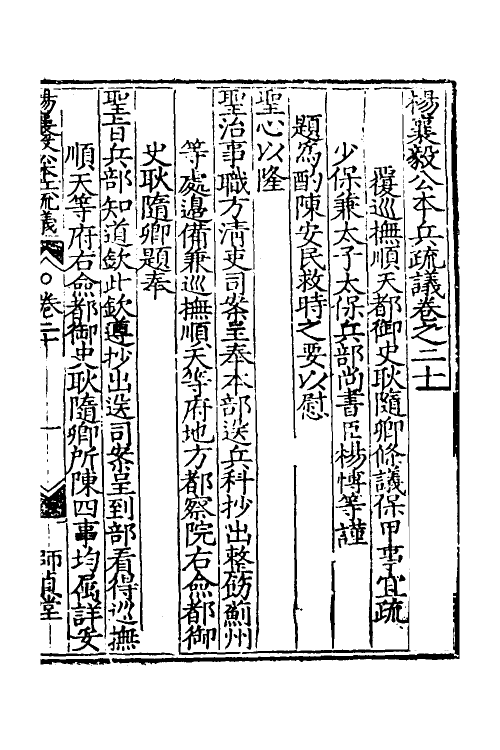 楊襄毅公本兵疏議卷之二十
覆巡撫順天都御史耿隨卿條議保甲事宜疏
少保兼太子太保兵部尚書臣楊博等謹
題爲酌陳安民救時之要以慰
聖心以隆
聖治事職方清吏司案呈奉本部送兵科抄出整飭薊州
等處邊備兼巡撫順天等府地方都察院右僉都御
史耿隨卿題奉
聖旨兵部知道欽此欽遵抄出送司案呈到部看得巡撫
順天等府右僉都御史耿隨卿所陳四事均屬詳妥
楊襄毅公本兵疏議
卷二十
一
師貞堂